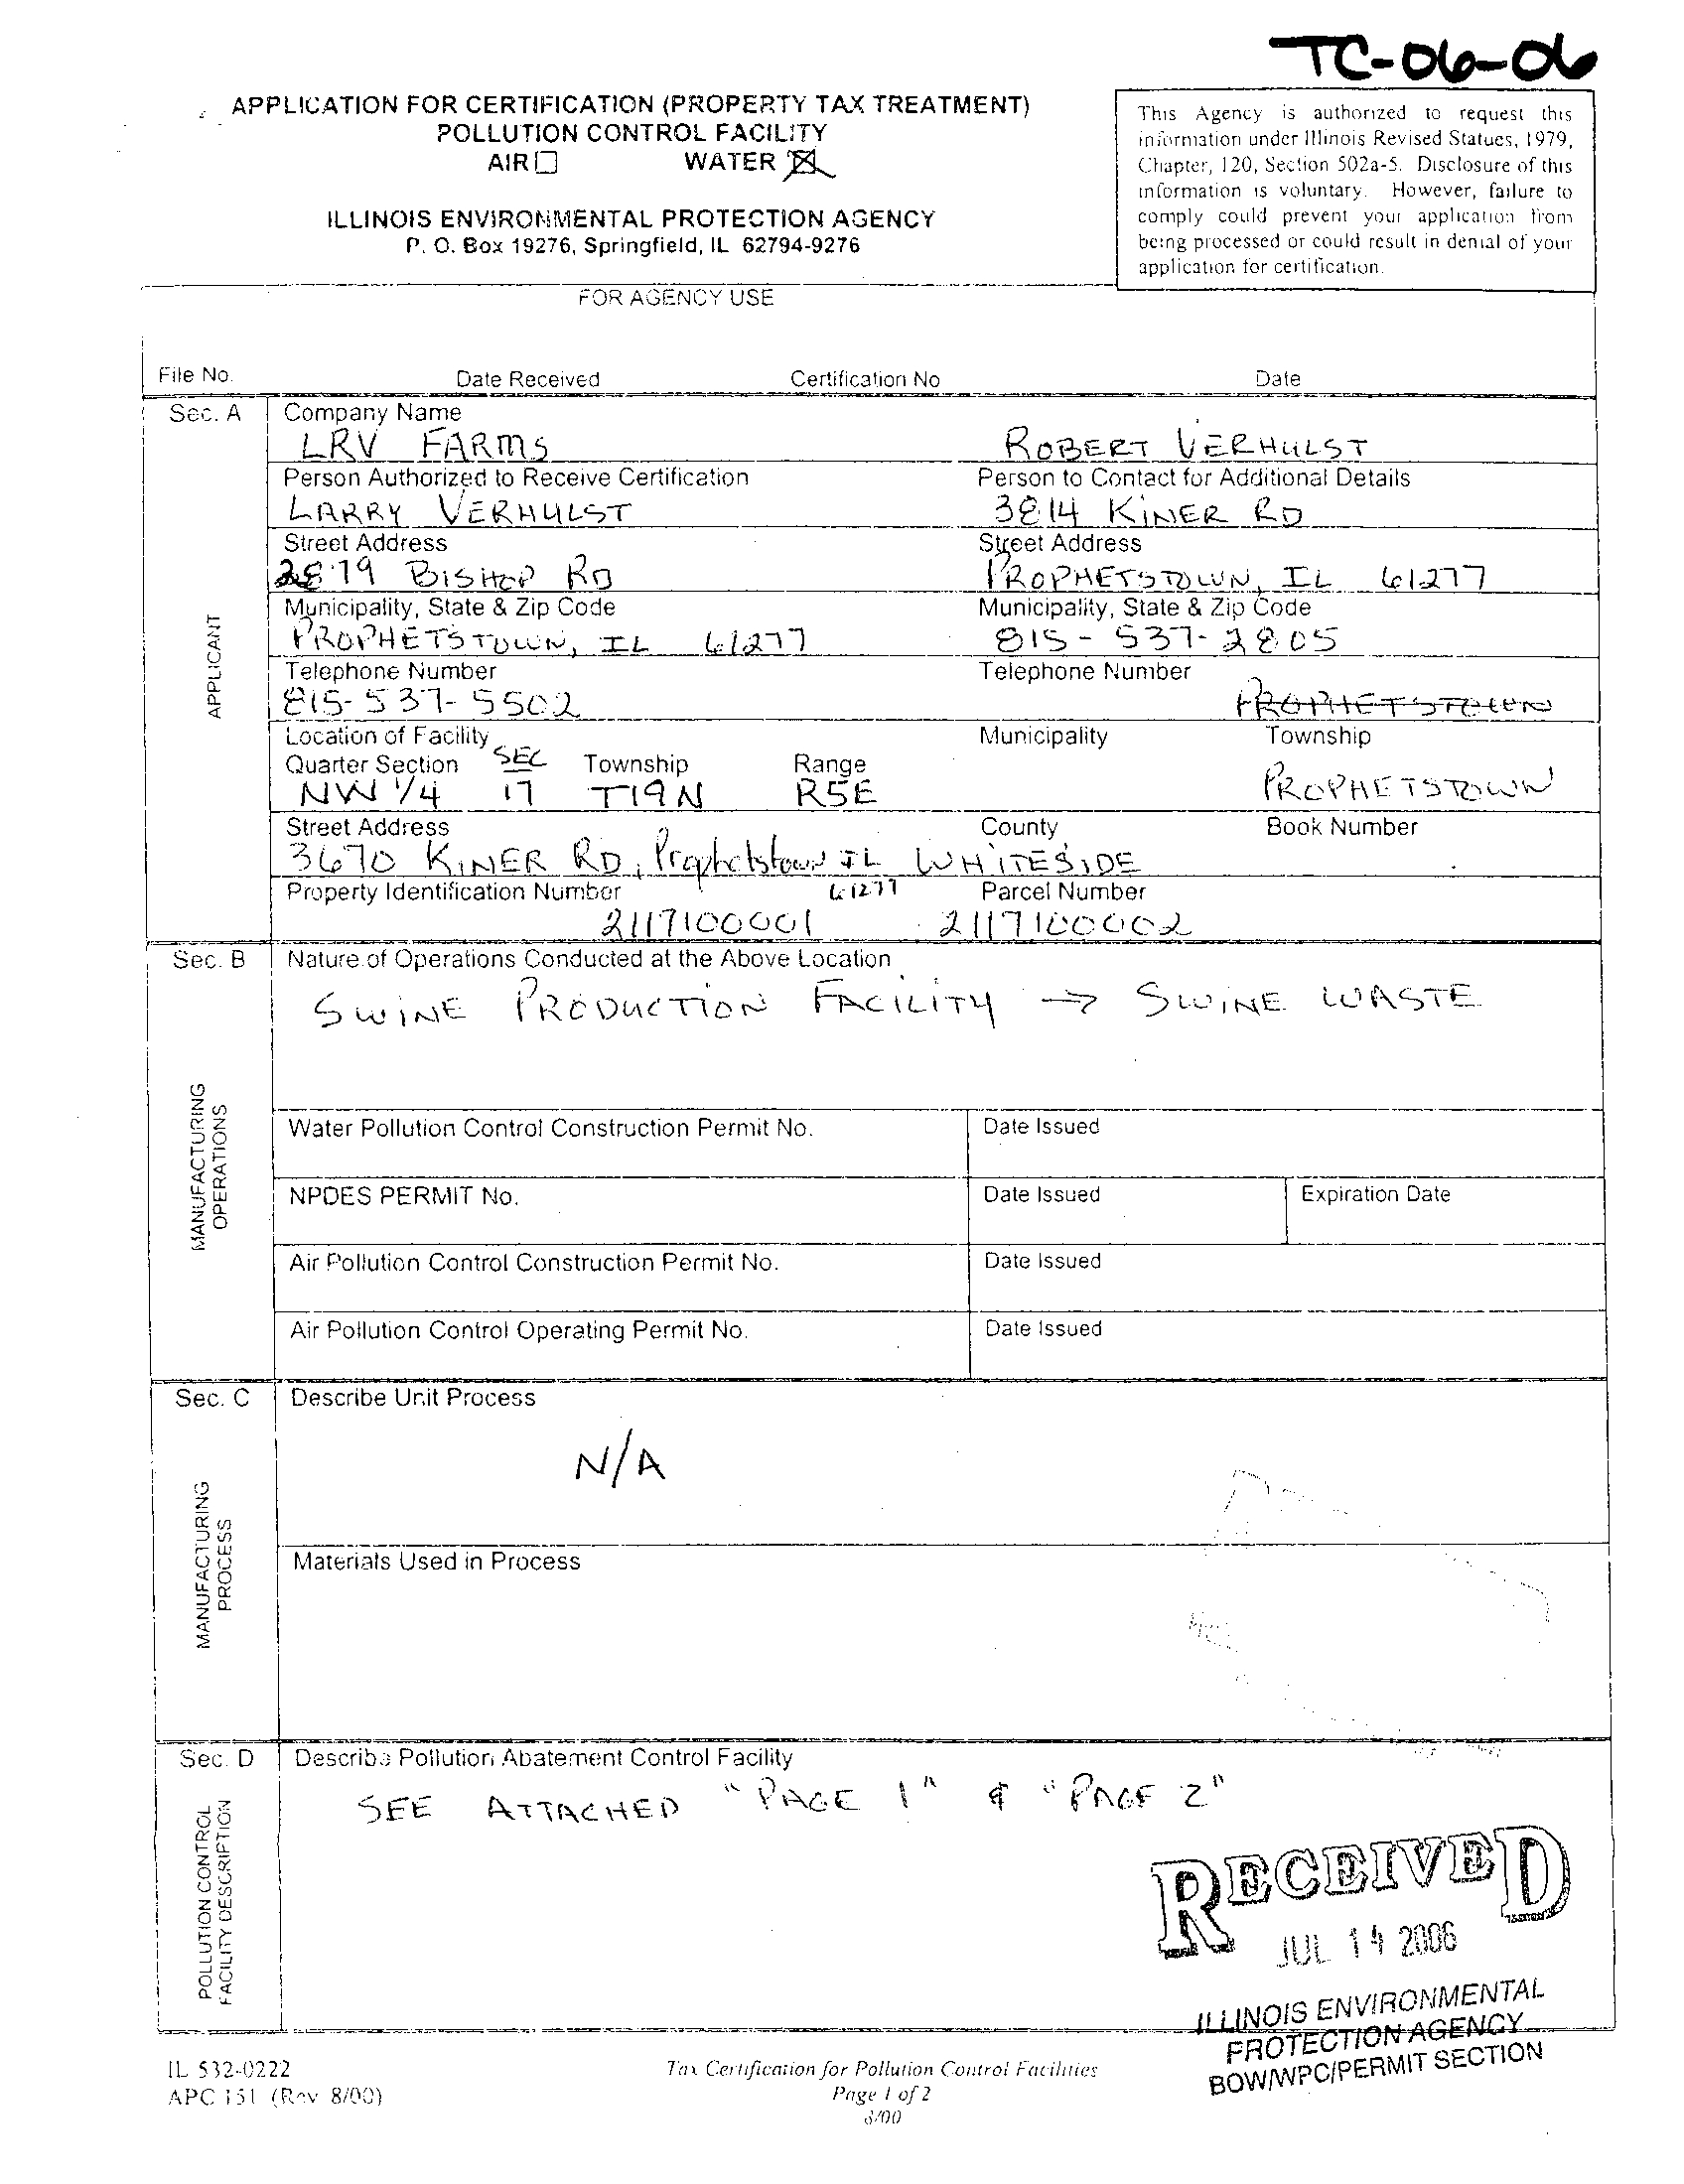 TC-06-06
APPLICATION FOR CERTIFICATION (PROPERTY TAX TREATMENT)
POLLUTION CONTROL FACILITY
AIR WATER
ILLINOIS ENVIRONMENTAL PROTECTION AGENCY
P. O. Box 19276, Springfield, IL 62794-9276
This Agency is authorized to request this
information under Illinois Revised Statues, 1979,
Chapter, 120, Section 502a-5. Disclosure of this
information is voluntary. However, failure to
comply could prevent your application from
being processed or could result in denial of your
application for certification.
FOR AGENCY USE
File No. Date Received Certification No Date
Sec. A Company Name
LRV FARMS ROBERT VERHULST
Person Authorized to Receive Certification Person to Contact for Additional Details
LARRY VERHULST 3814 KINER RD
Street Address Street Address
2879 BISHOP RD PROPHETSTOWN, IL 61277
Municipality, State & Zip Code Municipality, State & Zip Code
PROPHETSTOWN, IL 61277 815-537-2805
Telephone Number Telephone Number
815-537-5502 PROPHETSTOWN
Location of Facility Municipality Township
Quarter Section SEC Township Range
NW 1/4 17 T19N R5E PROPHETSTOWN
Street Address County Book Number
3670 KINER RD, Prophetstown IL WHITESIDE
61277
Property Identification Number Parcel Number
2117100001 2117100002
APPLICANT
Sec. B Nature of Operations Conducted at the Above Location
SWINE PRODUCTION FACILITY → SWINE WASTE
MANUFACTURING
OPERATIONS
Water Pollution Control Construction Permit No. Date Issued
NPDES PERMIT No. Date Issued Expiration Date
Air Pollution Control Construction Permit No. Date Issued
Air Pollution Control Operating Permit No. Date Issued
Sec. C Describe Unit Process
N/A
MANUFACTURING
PROCESS
Materials Used in Process
Sec. D Describe Pollution Abatement Control Facility
SEE ATTACHED "PAGE 1" & "PAGE 2"
POLLUTION CONTROL
FACILITY DESCRIPTION
RECEIVED
JUL 14 2006
ILLINOIS ENVIRONMENTAL
PROTECTION AGENCY
BOW/WPC/PERMIT SECTION
IL 532-0222
APC 151 (Rev 8/00)
Tax Certification for Pollution Control Facilities
Page 1 of 2
8/00